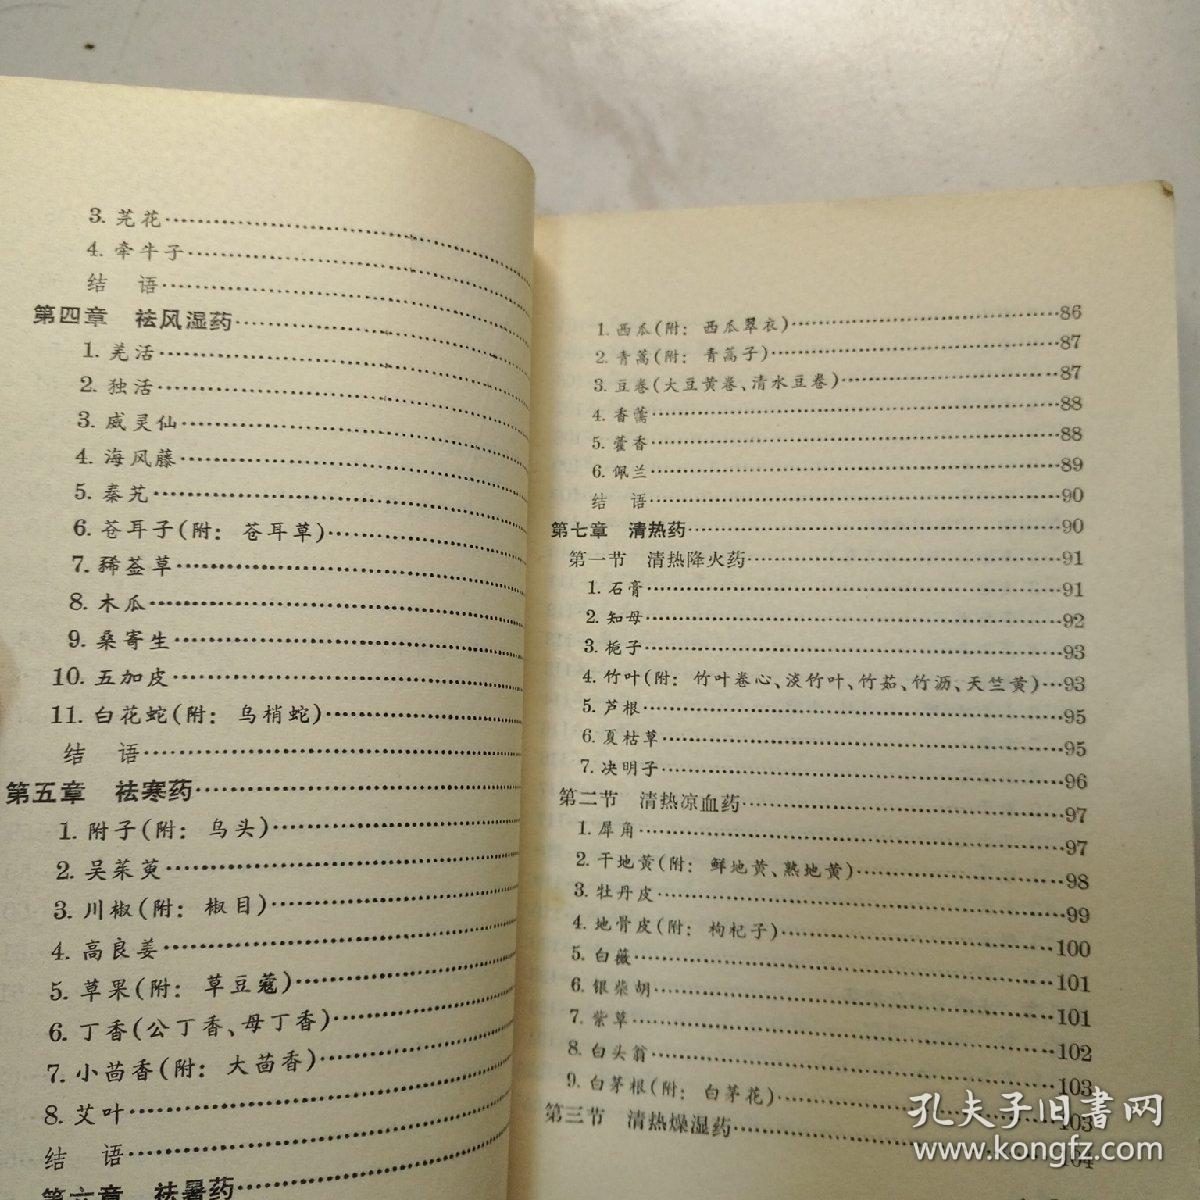 3. 芫花
4. 牵牛子
结 语
第四章 祛风湿药
1. 羌活
2. 独活
3. 威灵仙
4. 海风藤
5. 秦艽
6. 苍耳子(附：苍耳草)
7. 豨莶草
8. 木瓜
9. 桑寄生
10. 五加皮
11. 白花蛇(附：乌梢蛇)
结 语
第五章 祛寒药
1. 附子(附：乌头)
2. 吴茱萸
3. 川椒(附：椒目)
4. 高良姜
5. 草果(附：草豆蔻)
6. 丁香(公丁香、母丁香)
7. 小茴香(附：大茴香)
8. 艾叶
结 语
第六章 祛暑药
1. 西瓜(附：西瓜翠衣) 86
2. 青蒿(附：青蒿子) 87
3. 豆卷(大豆黄卷、清水豆卷) 87
4. 香薷 88
5. 藿香 88
6. 佩兰 89
结 语 90
第七章 清热药 90
第一节 清热降火药 91
1. 石膏 91
2. 知母 92
3. 栀子 93
4. 竹叶(附：竹叶卷心、淡竹叶、竹茹、竹沥、天竺黄) 93
5. 芦根 95
6. 夏枯草 95
7. 决明子 96
第二节 清热凉血药 97
1. 犀角 97
2. 干地黄(附：鲜地黄、熟地黄) 98
3. 牡丹皮 99
4. 地骨皮(附：枸杞子) 100
5. 白薇 101
6. 银柴胡 101
7. 紫草 102
8. 白头翁 103
9. 白茅根(附：白茅花) 103
第三节 清热燥湿药 104
孔夫子旧書网
www.kongfz.com